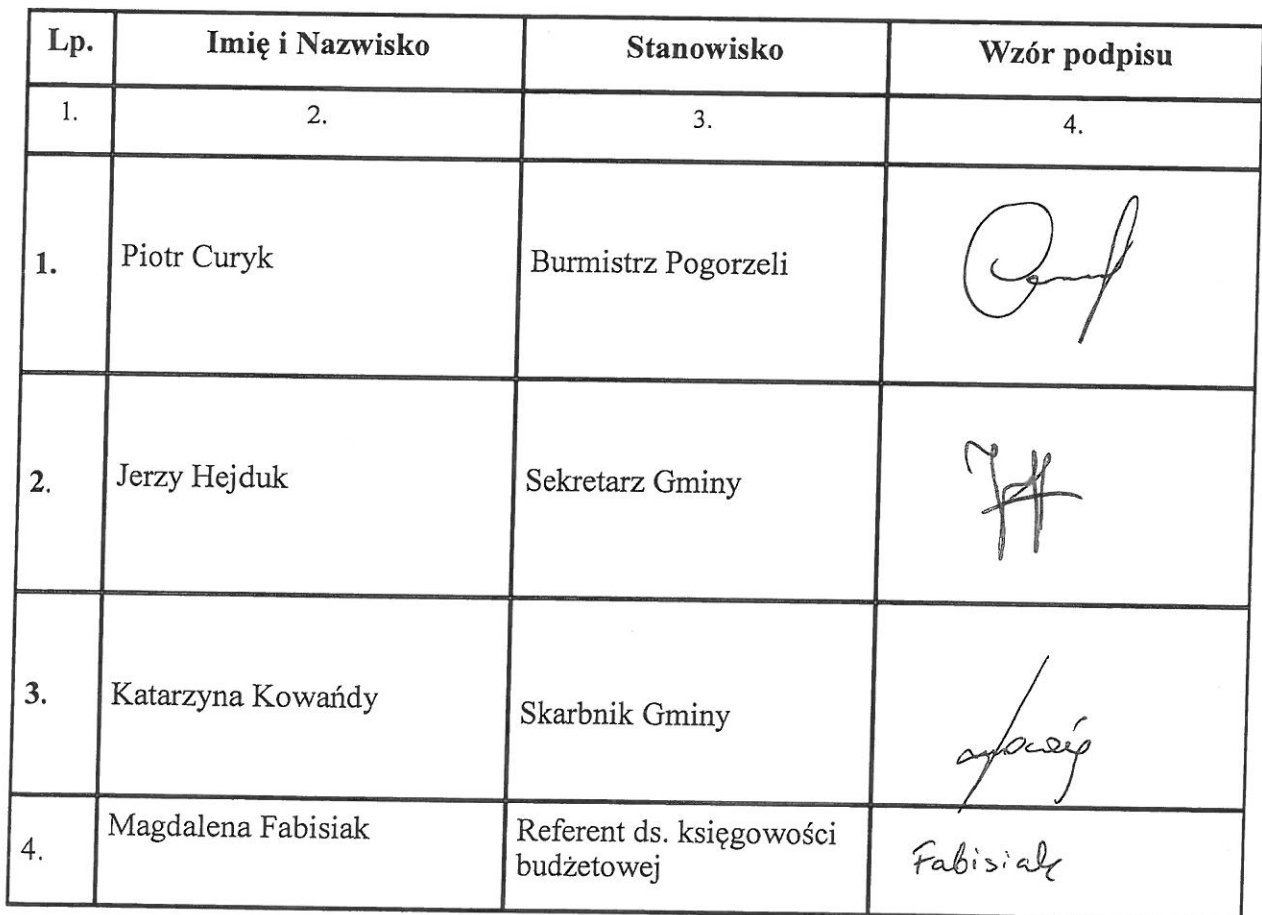 Lp. Imię i Nazwisko Stanowisko Wzór podpisu
1. 2. 3. 4.
1. Piotr Curyk Burmistrz Pogorzeli
2. Jerzy Hejduk Sekretarz Gminy
3. Katarzyna Kowańdy Skarbnik Gminy
4. Magdalena Fabisiak Referent ds. księgowości
budżetowej Fabisiak